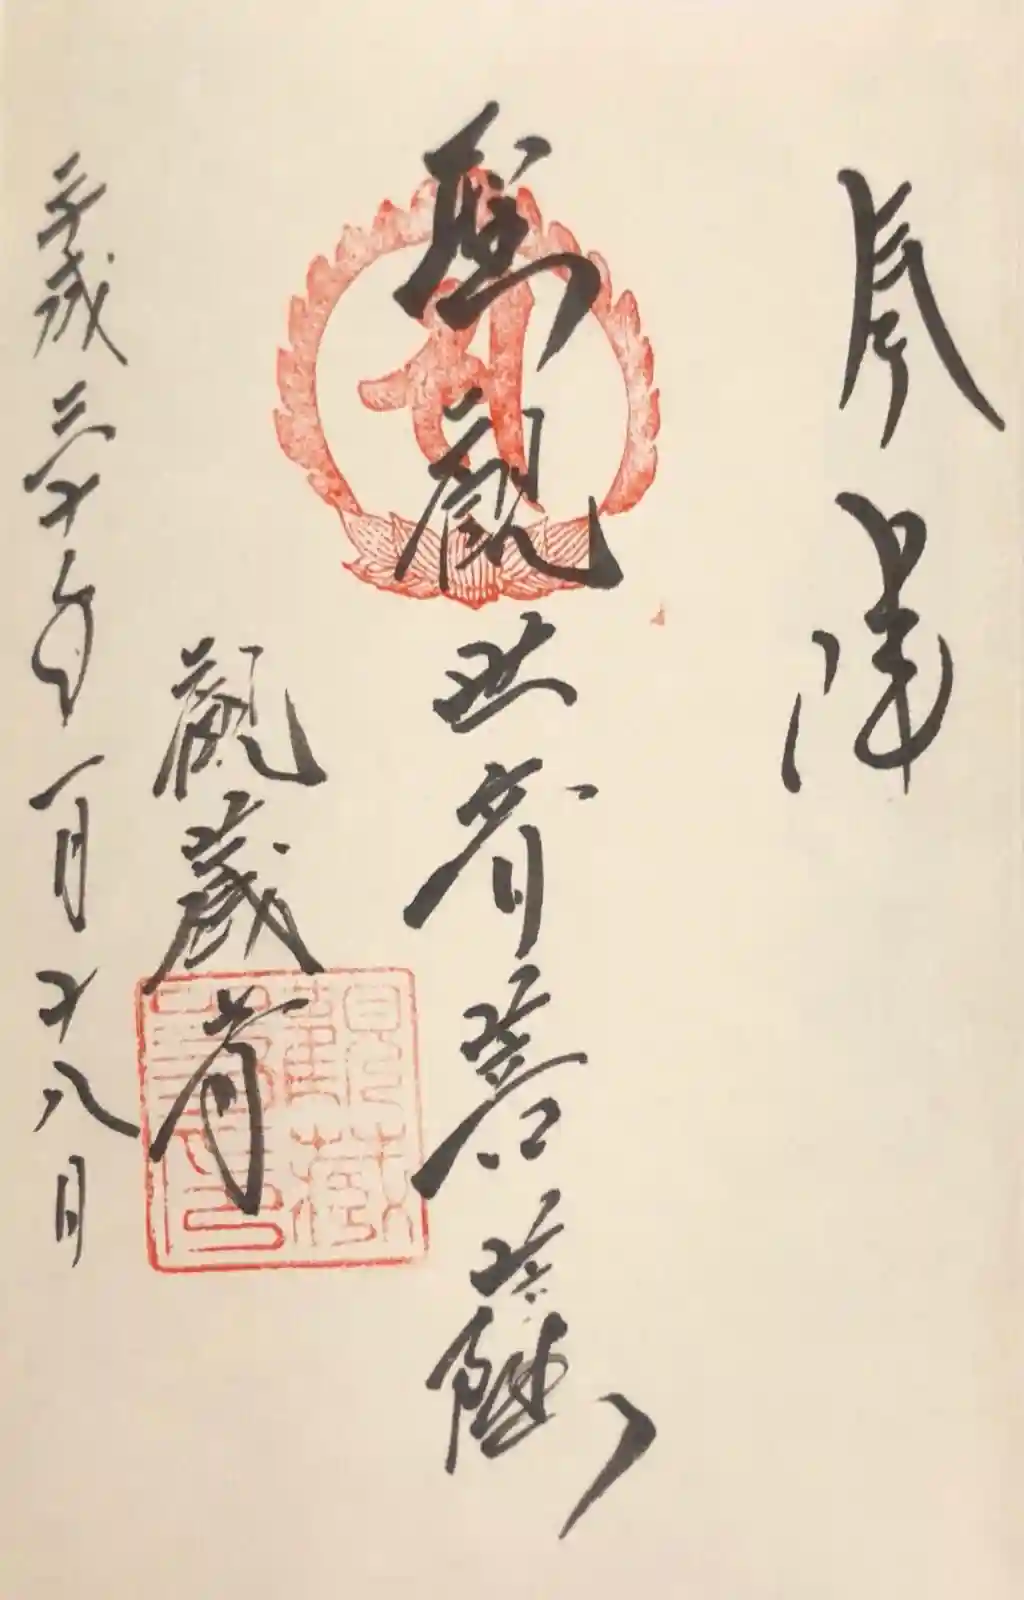 奉拝
聖觀世音菩薩
觀蔵寺
平成三十年一月十八日